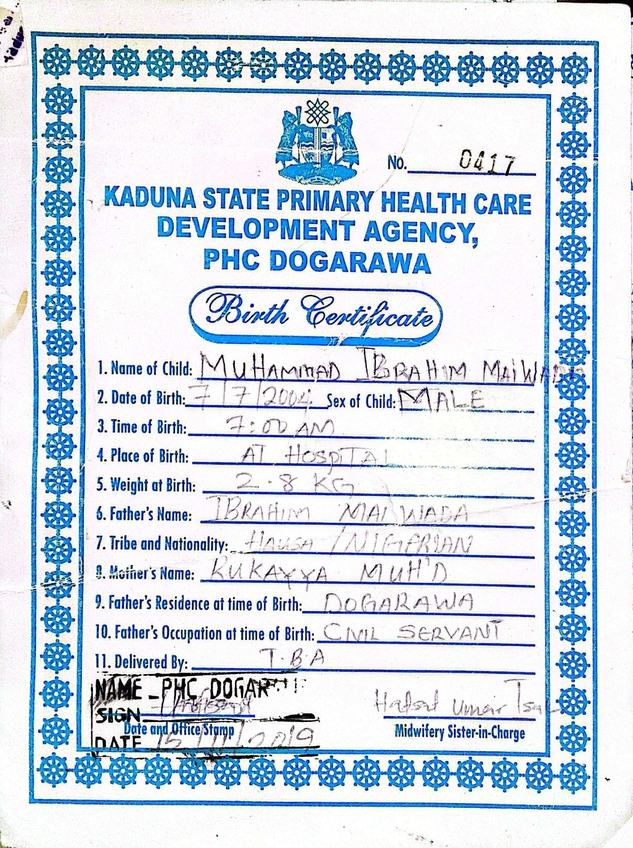 No. 0417
KADUNA STATE PRIMARY HEALTH CARE
DEVELOPMENT AGENCY,
PHC DOGARAWA
Birth Certificate
1. Name of Child: MUHAMMAD IBRAHIM MAIWADA
2. Date of Birth: 7/7/2004 Sex of Child: MALE
3. Time of Birth: 7:00 AM
4. Place of Birth: AT HOSPITAL
5. Weight at Birth: 2.8 KG
6. Father's Name: IBRAHIM MAIWADA
7. Tribe and Nationality: HAUSA / NIGERIAN
8. Mother's Name: RUKAYYA MUH'D
9. Father's Residence at time of Birth: DOGARAWA
10. Father's Occupation at time of Birth: CIVIL SERVANT
11. Delivered By: T.B.A
NAME PHC DOGAR
SIGN Umar
Date and Office Stamp Midwifery Sister-in-Charge
DATE 2019